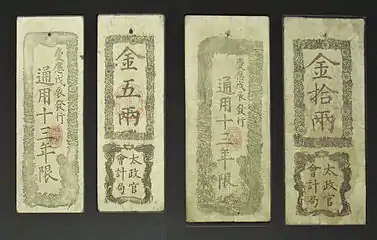 慶應戊辰發行
通用十三年限
金五兩
太政官
會計局
慶應戊辰發行
通用十三年限
金拾兩
太政官
會計局